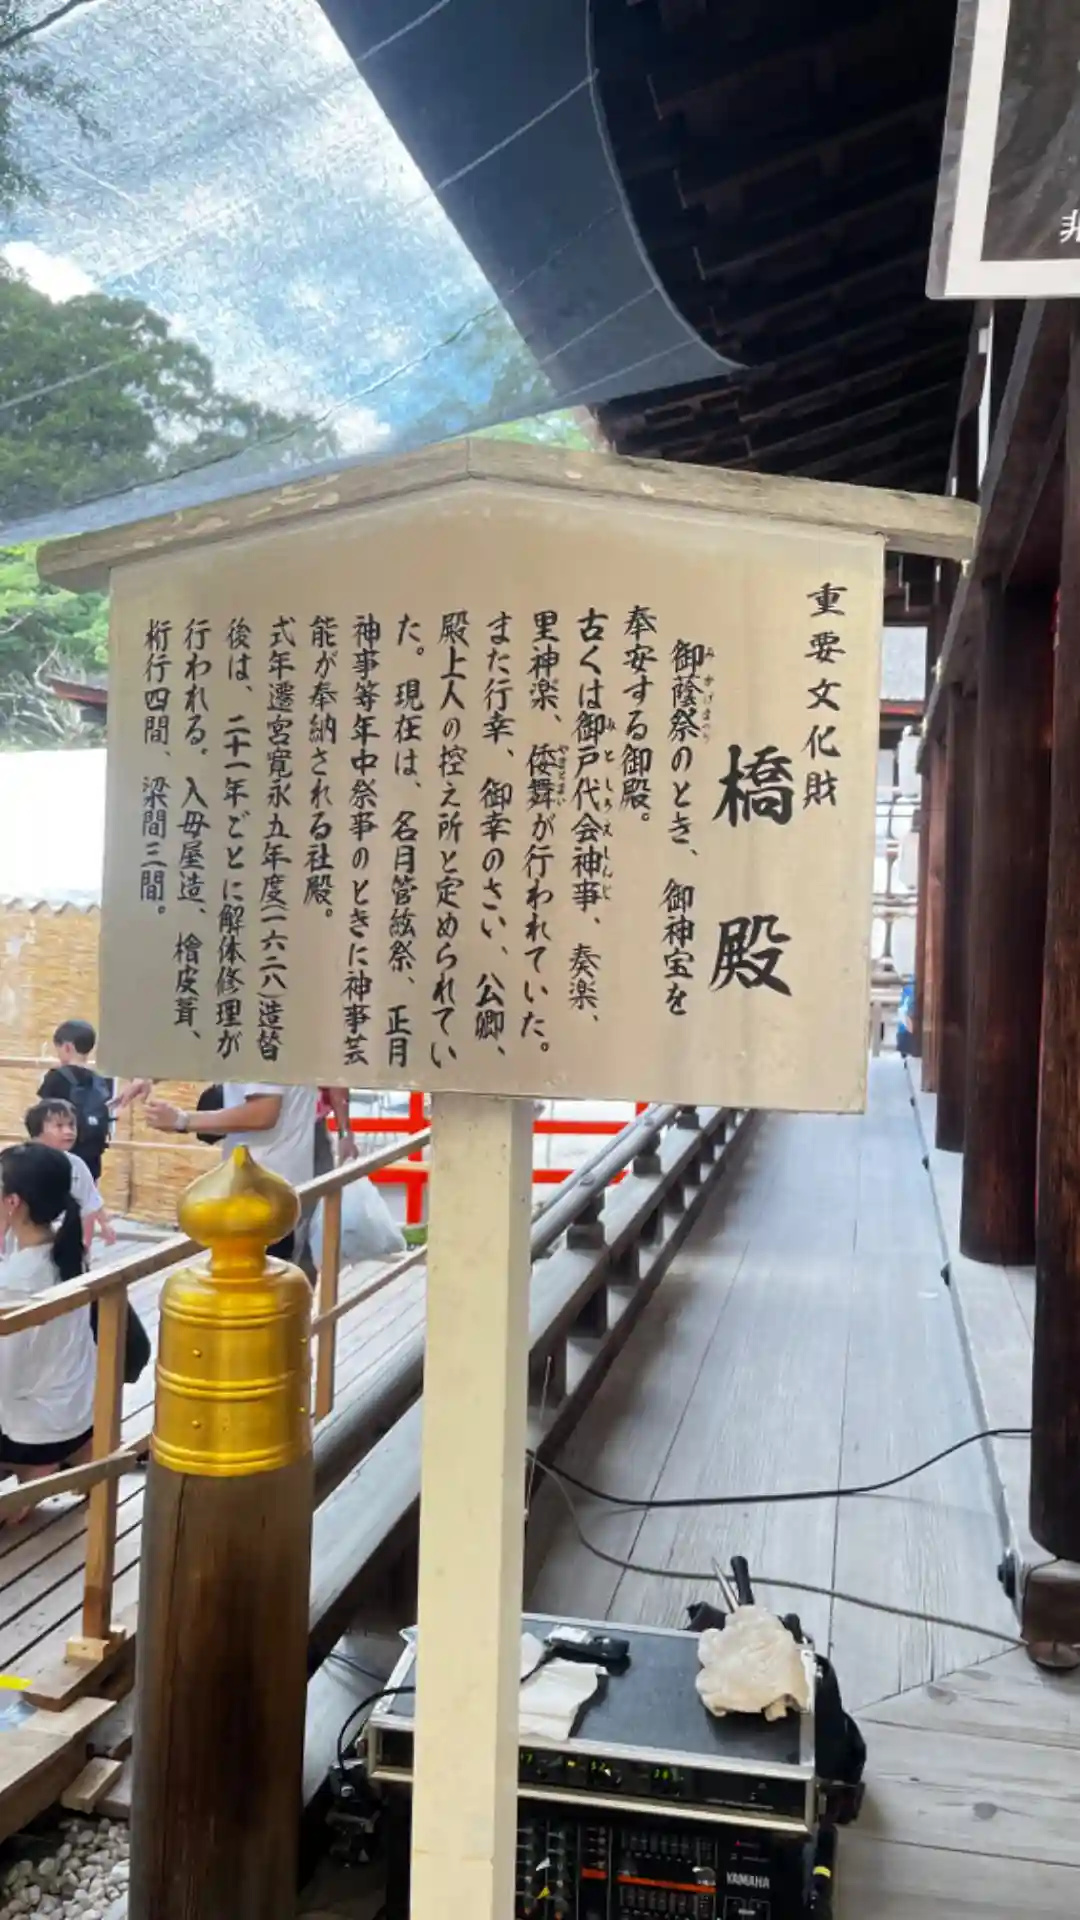 重要文化財
橋殿
御蔭祭のとき、御神宝を
みかげまつり
奉安する御殿。
古くは御戸代会神事、奏楽、
みとしろえしんじ
里神楽、倭舞が行われていた。
やまとまい
また行幸、御幸のさい、公卿、
殿上人の控え所と定められてい
た。現在は、名月管絃祭、正月
神事等年中祭事のときに神事芸
能が奉納される社殿。
式年遷宮寛永五年度(一六二八)造替
後は、二十一年ごとに解体修理が
行われる。入母屋造、檜皮葺、
桁行四間、梁間三間。
非
YAMAHA